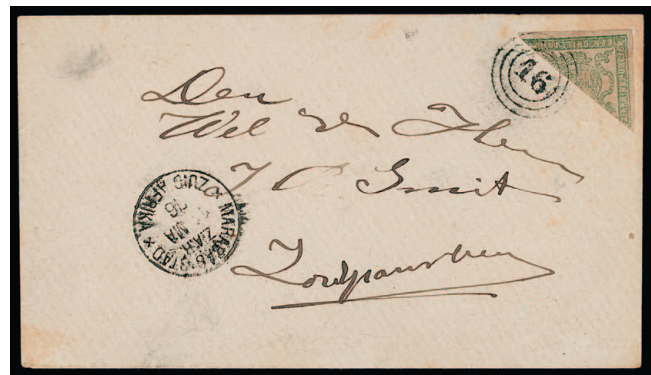 16
Den
Wel Ed Heer
J C Smit
Zoutpansberg
MARABASTAD
ZUID AFRIKA
Z.A.R
MA